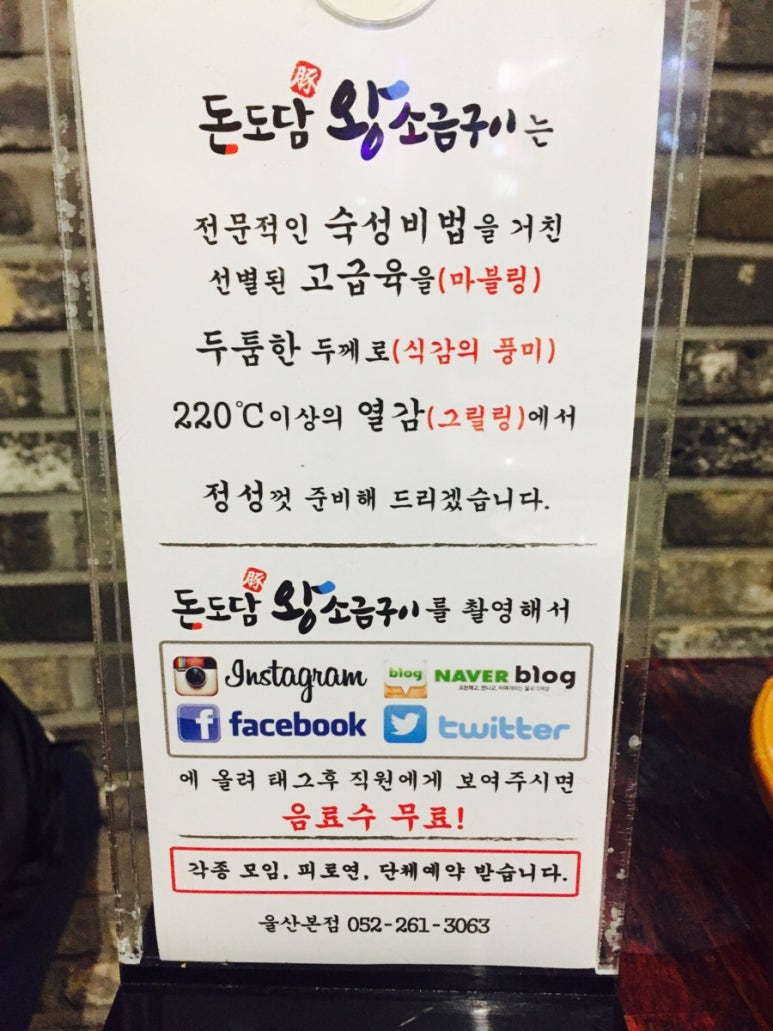 豚
돈도담 왕소금구이는
전문적인 숙성비법을 거친
선별된 고급육을(마블링)
두툼한 두께로(식감의 풍미)
220℃이상의 열감(그릴링)에서
정성껏 준비해 드리겠습니다.
豚
돈도담 왕소금구이를 촬영해서
Instagram blog NAVER blog
f facebook twitter
에 올려 태그후 직원에게 보여주시면
음료수 무료!
각종 모임, 피로연, 단체예약 받습니다.
울산본점 052-261-3063